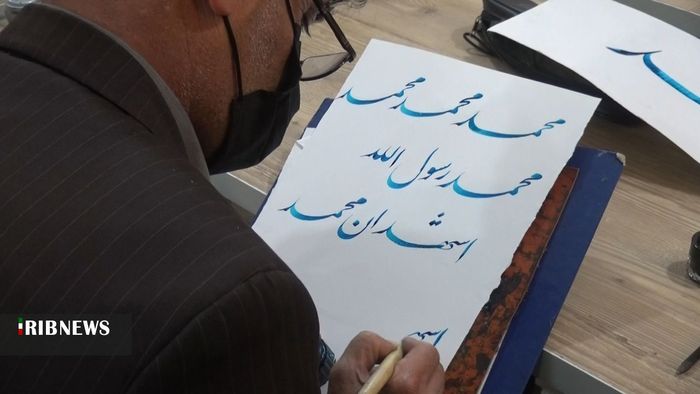 محمد محمد محمد
محمد رسول الله
اشهد ان محمد
اشهـ
محمد
IRIBNEWS